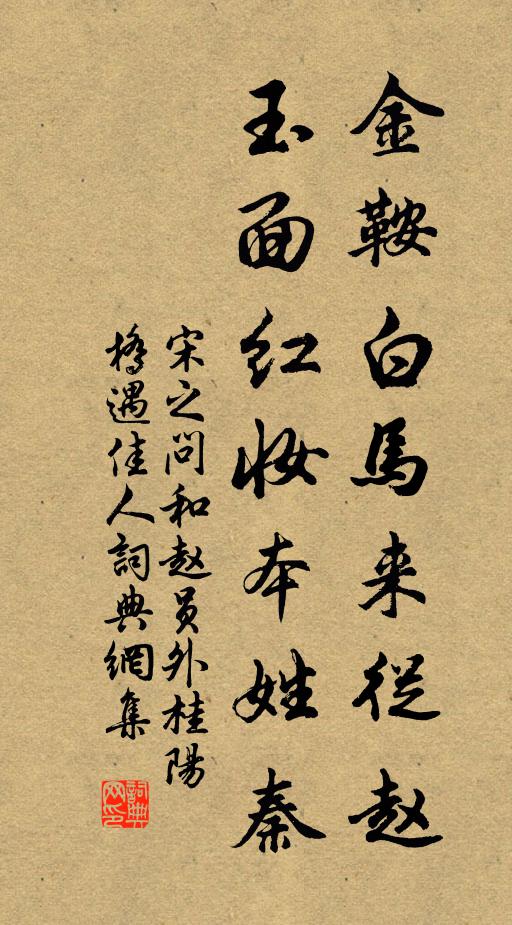 金鞍白馬来從赵
玉面红妆本姓秦
宋之问和赵员外桂陽
橋遇佳人詞典網集
詞典网印